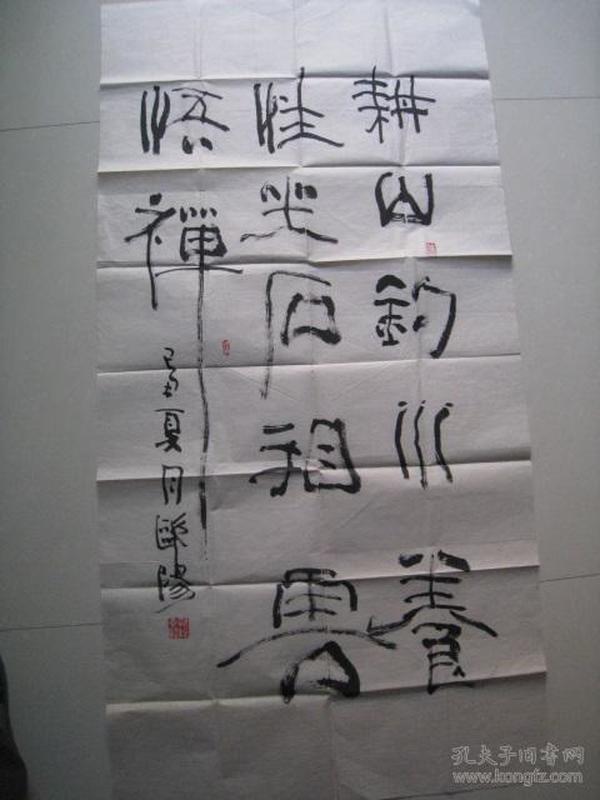 耕山釣水養
性坐石相雲
悟禪
己丑夏月歐陽
孔夫子旧书网
www.kongfz.com